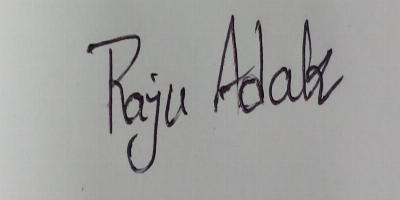 Raju Adak